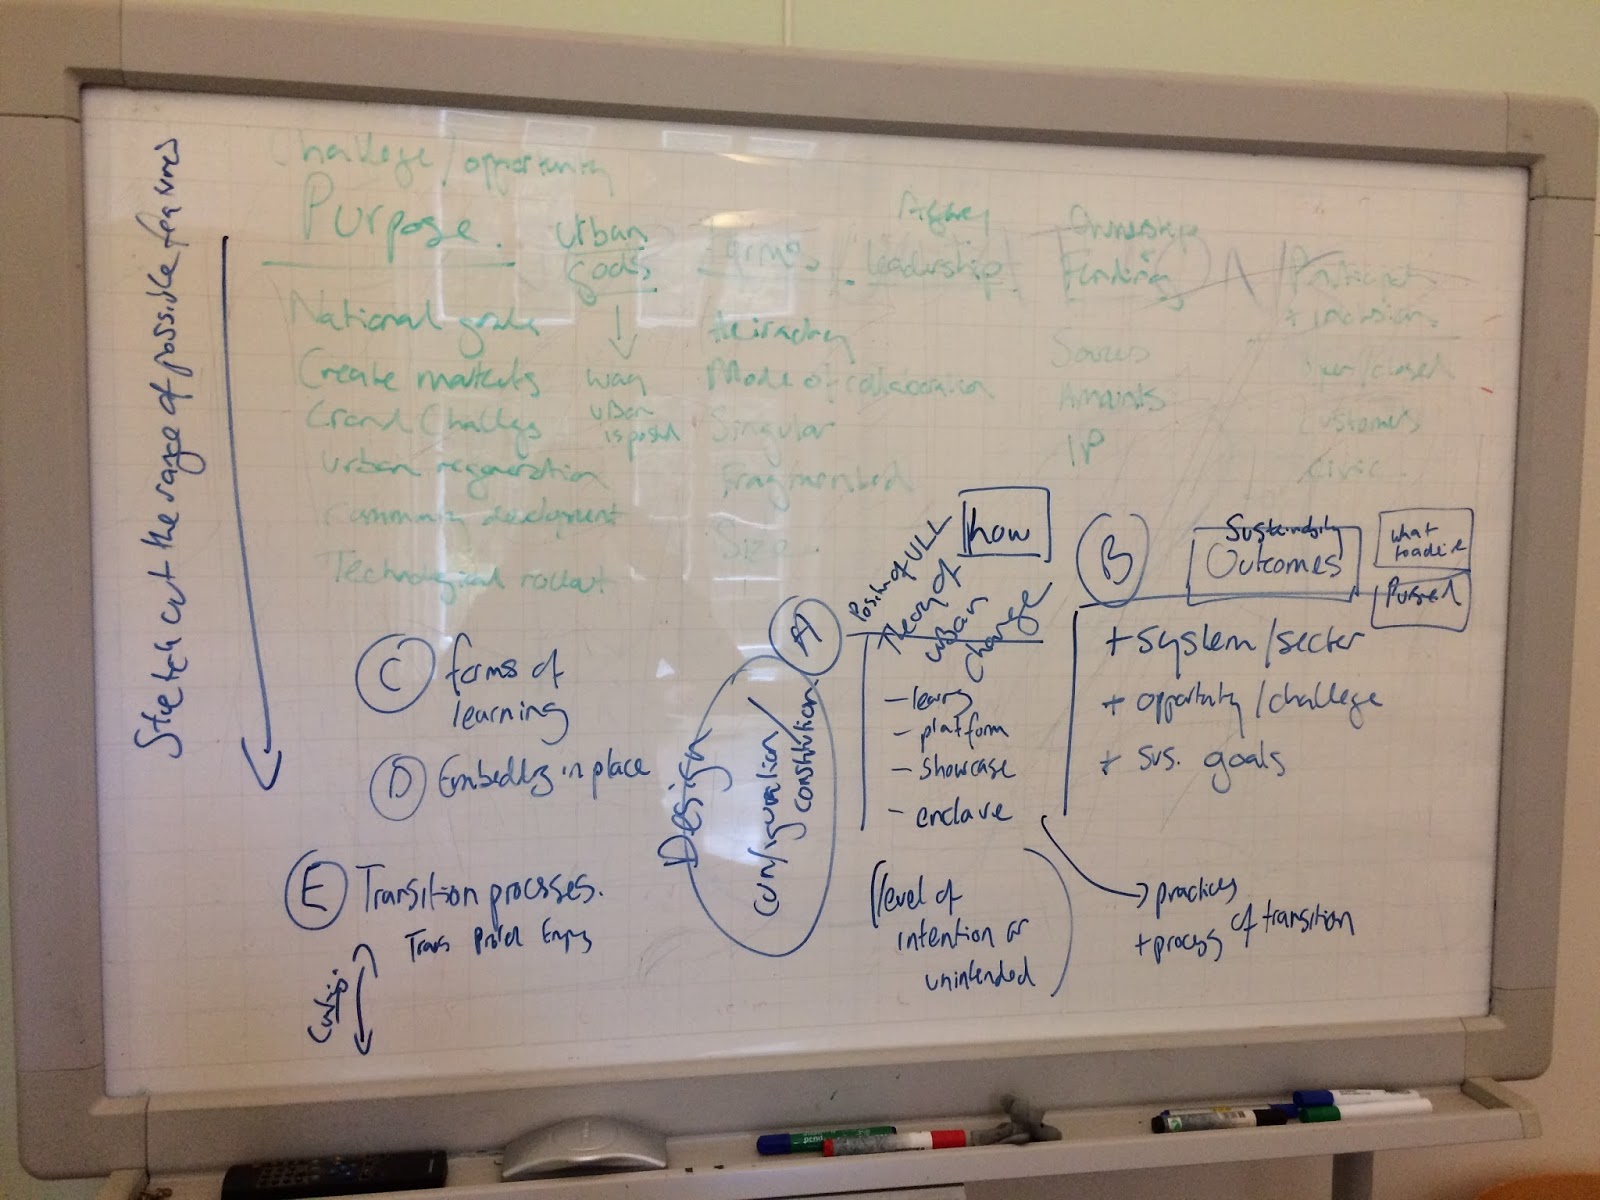 Stretch out the range of possible features
Challege/opportunity
Purpose.
National goals
Create markets
Grand Challegs
urban regeneration
Community development
Technological rollout
Urban
goals
way
urban
is posed
Forms
Mode of collaboration
Singular
Fragmented
Size
Agency
Leadership
Ownership
Funding
Sources
Amounts
IP
+ inclusion
open/closed
customers
civic
how
A
Theory of
urban
change
- learng
- platform
- showcase
- enclave
(level of
intention or
unintended)
B
Sustainability
Outcomes
what
+ system/sector
+ opportunity/challege
+ sus. goals
practices
+ process of transition
Design
configuration/
constitution
C
forms of
learning
D
Embeddg in place
E
Transition processes.